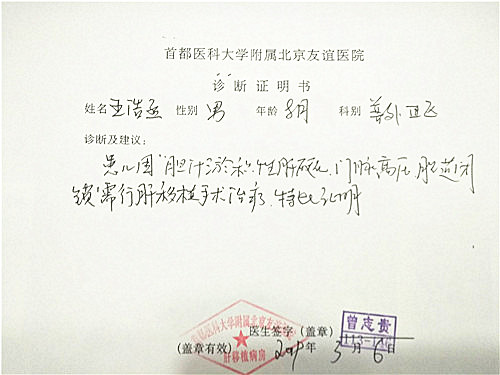 首都医科大学附属北京友谊医院
诊断证明书
姓名 王浩丞 性别 男 年龄 8月 科别 普外四
诊断及建议：
患儿因"胆汁淤积性肝硬化、门脉高压、胆道闭
锁"需行肝移植手术治疗，特此证明
首都医科大学附属北京友谊医院
肝移植病房
医生签字（盖章）
曾志贵
(盖章有效) 年 3月6日